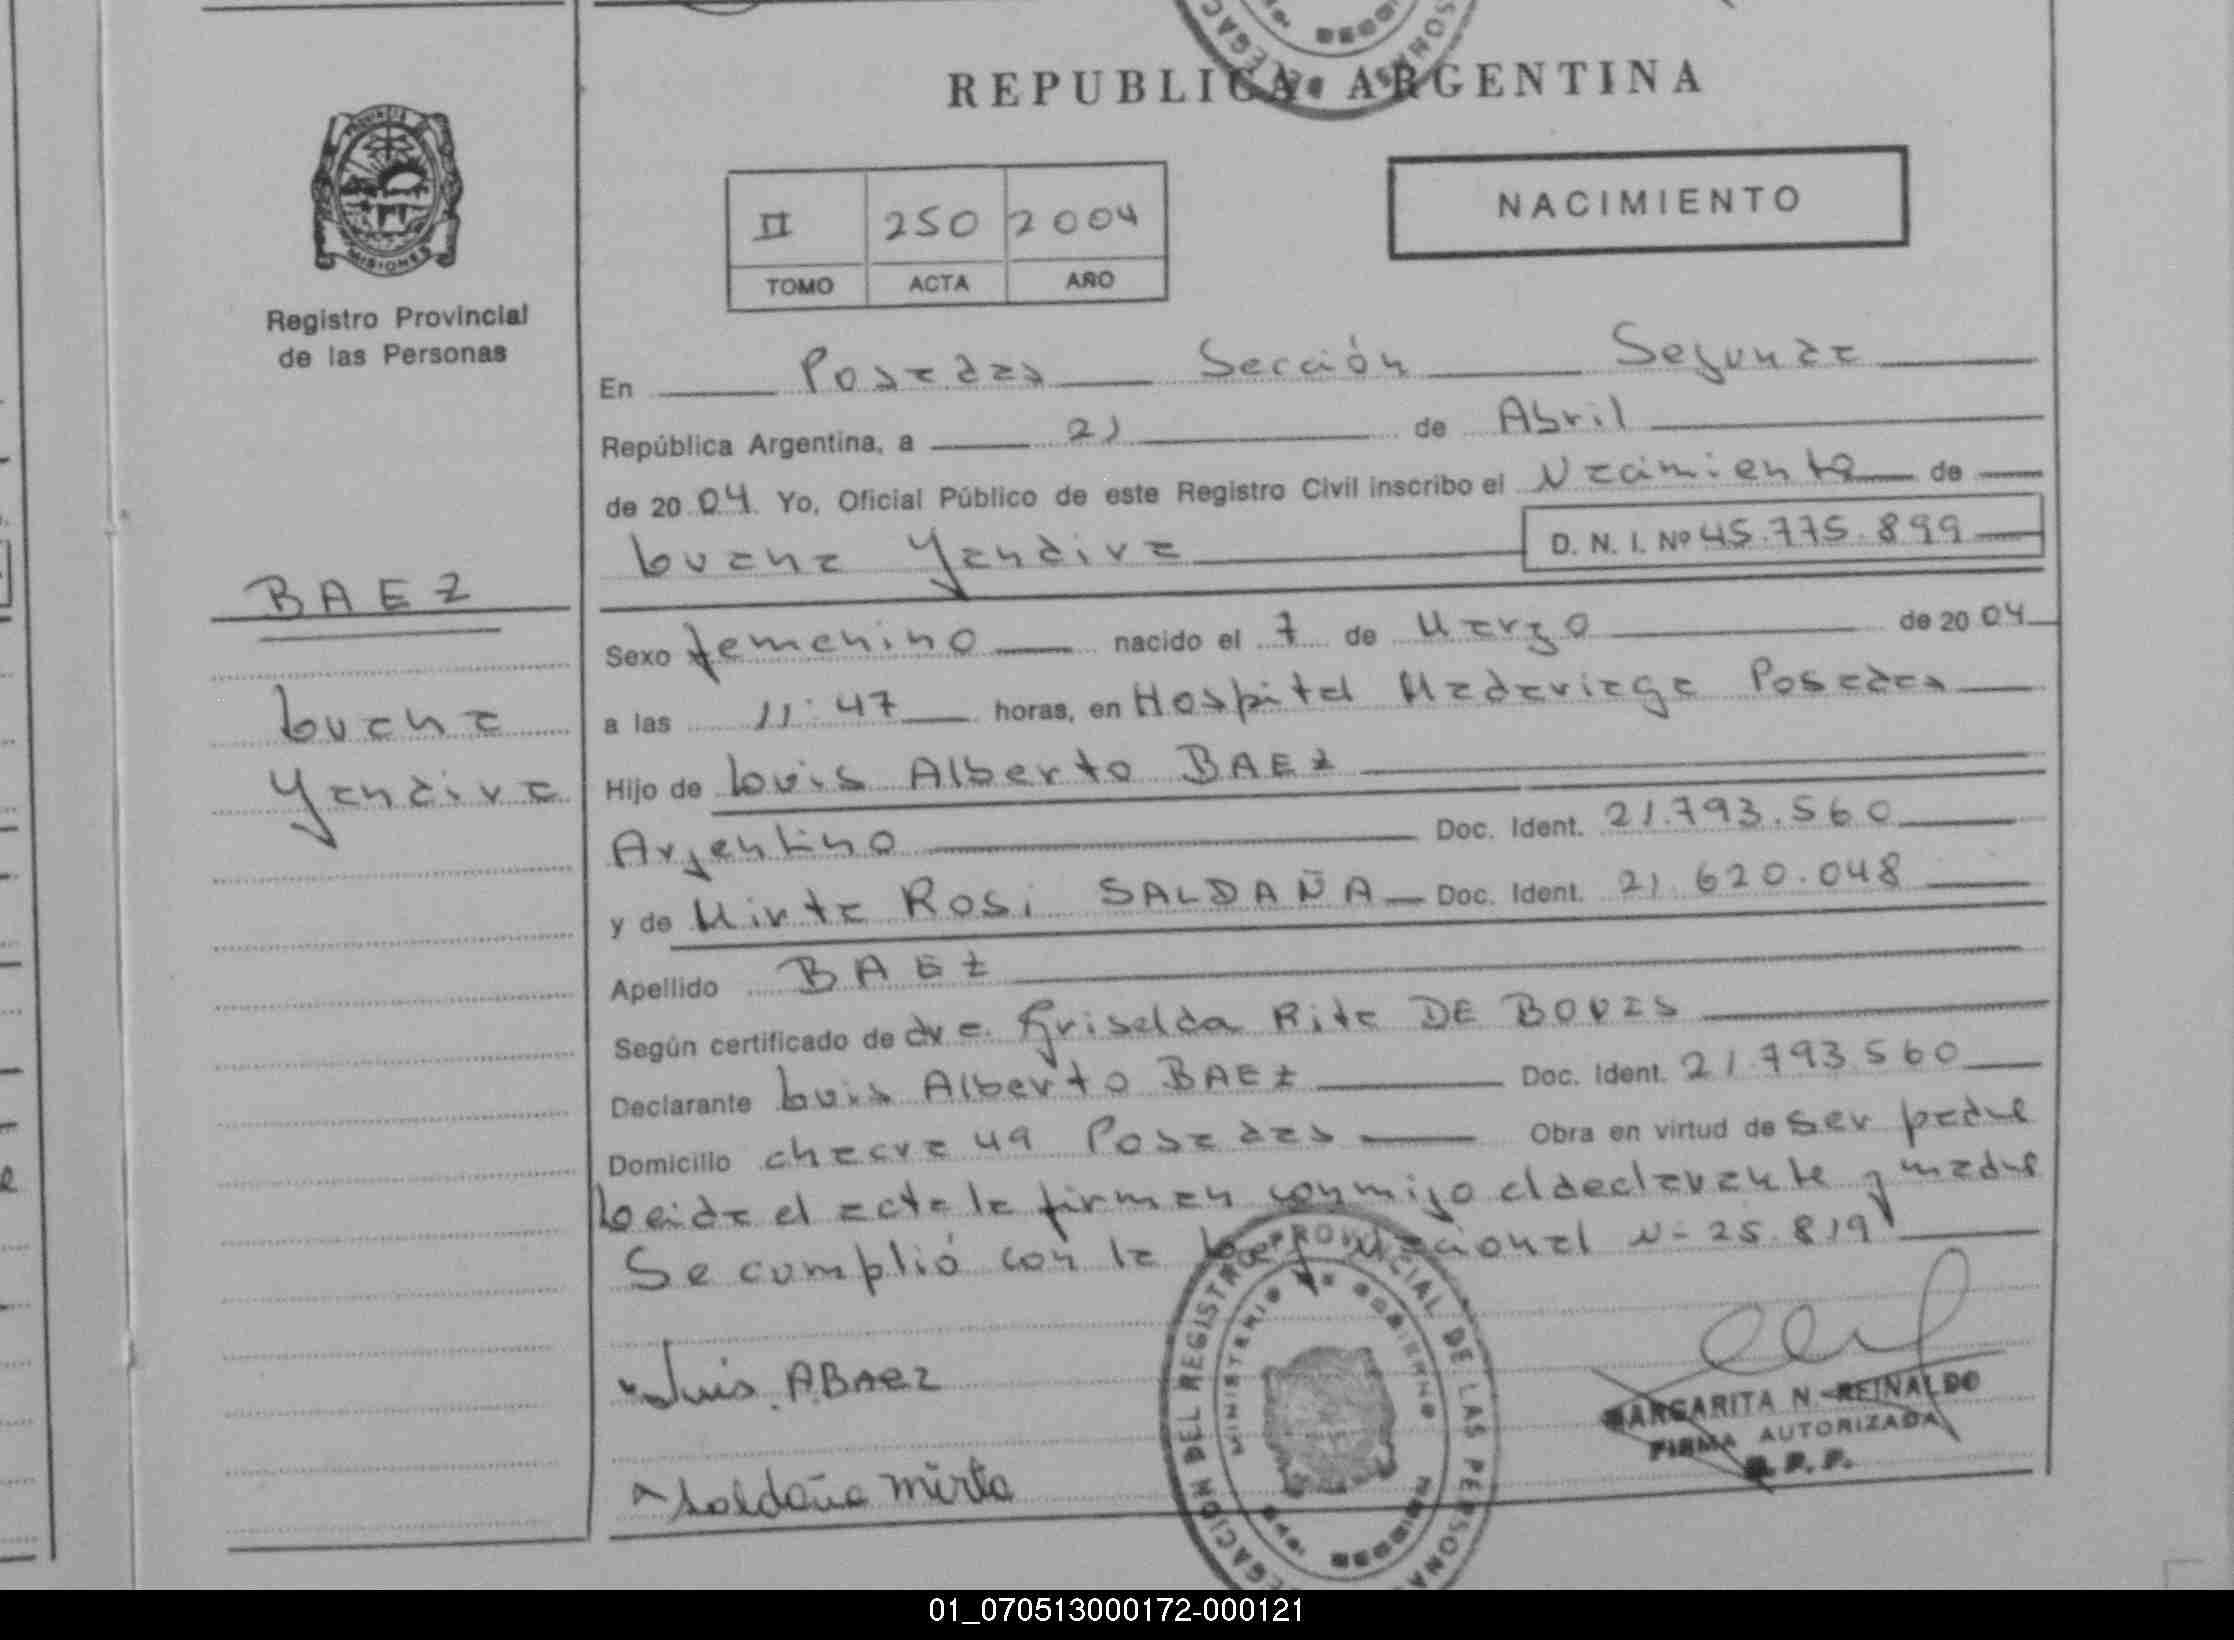 REPUBLICA ARGENTINA
PROVINCIA DE
MISIONES
Registro Provincial
de las Personas
II 250 2004
TOMO ACTA AÑO
NACIMIENTO
En Posadas Sección Segunda
República Argentina, a 21 de Abril
de 2004 Yo, Oficial Público de este Registro Civil inscribo el Nacimiento de
Luana Yandira D. N. I. Nº 45.775.899
BAEZ
Luana
Yandira
Sexo femenino nacido el 7 de Marzo de 2004
a las 11:47 horas, en Hospital Madariaga Posadas
Hijo de Luis Alberto BAEZ
Argentino Doc. Ident. 21.793.560
y de Mirta Rosi SALDAÑA Doc. Ident. 21.620.048
Apellido BAEZ
Según certificado de dra. Griselda Rita DE
Declarante Luis Alberto BAEZ Doc. Ident. 21.793.560
Domicilio chacra 49 Posadas Obra en virtud de ser padre
Leida el acta la firman conmigo el declarante y madre
Se cumplió con la Ley Nacional N- 25.819
Luis A Baez
Saldaña Mirta
DELEGACION DEL REGISTRO PROVINCIAL DE LAS PERSONAS
MINISTERIO DE GOBIERNO
MARGARITA N. REINALDO
FIRMA AUTORIZADA
R. P. P.
01_070513000172-000121